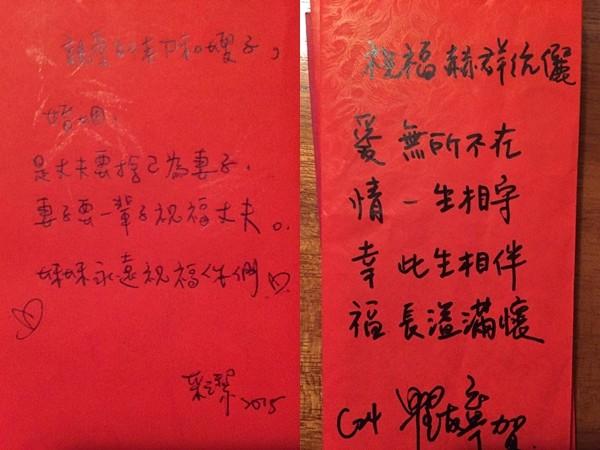 親愛的弟和嫂子,
婚姻,
是丈夫要捨己為妻子,
妻子要一輩子祝福丈夫。
妹妹永遠祝福你們♡
2015
祝福赫祥伉儷
愛 無所不在
情 一生相守
幸 此生相伴
福 長溢滿懷
賀